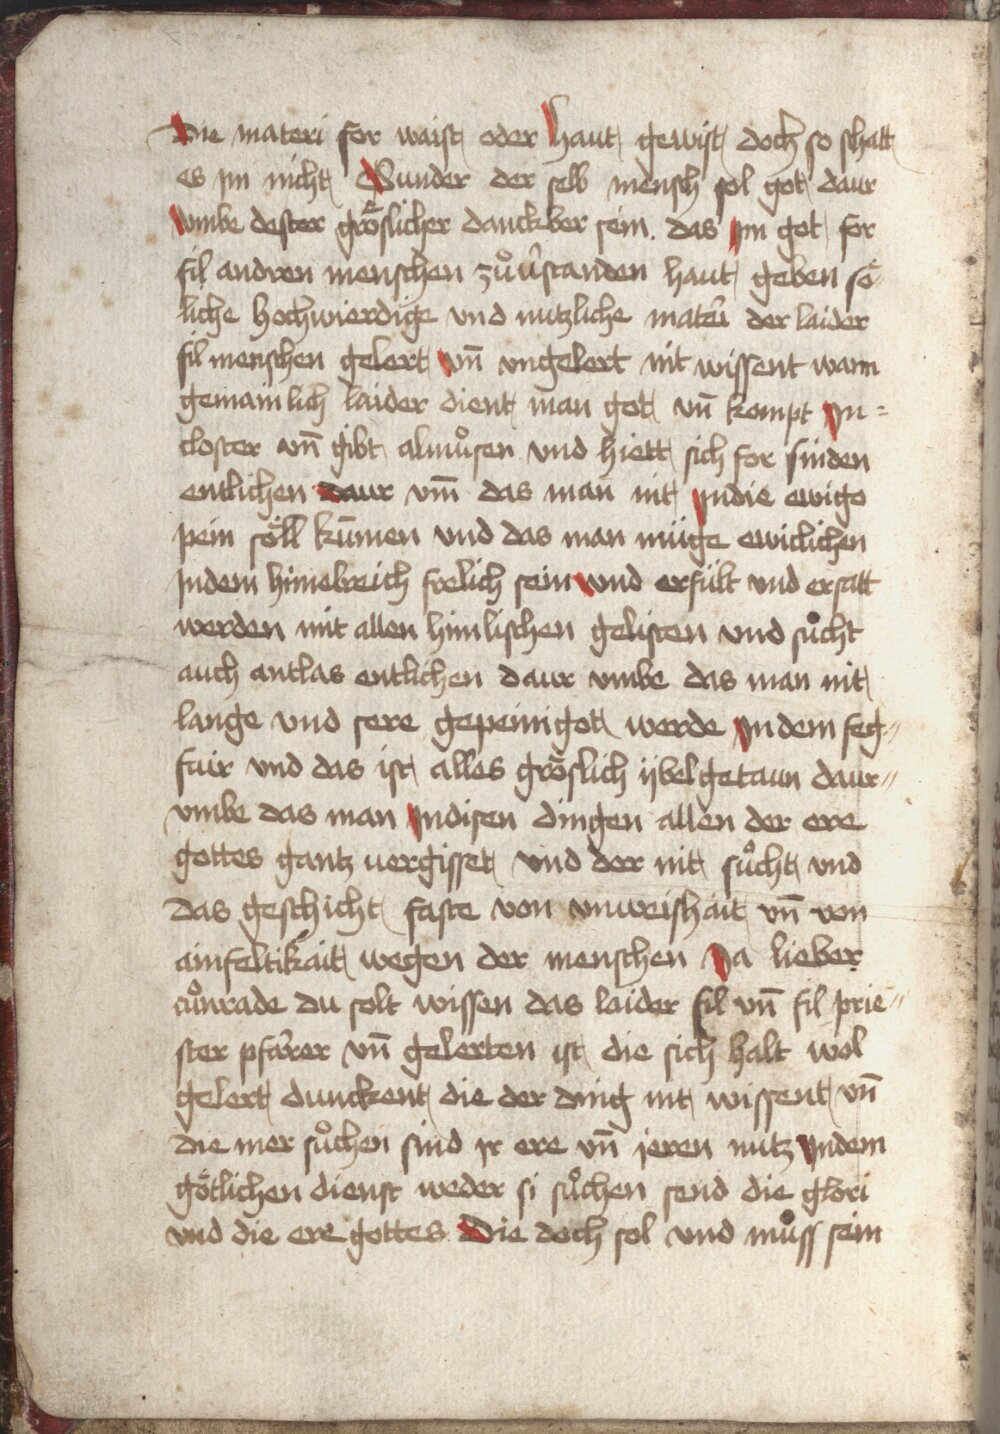 Die materi for waist oder haut gewist doch so schatt
es im nicht Sunder der selb mensch sol got daur
vmbe dester gröslicher danckber sein. das im got for
fil andren menschen zůůstanden haut geben sö
liche hochwierdige vnd nutzliche materi der laider
fil menschen gelert vn̄ vngelert nit wissent wann
gemainlich laider dient man got vn̄ kompt In=
closter vn̄ gibt almůsen vnd hiett sich for sinden
entlichen daur vm̄ das man nit Indie ewigo
pein söll kūmen vnd das man müge ewiclichen
Indem himelreich frelich sein vnd erfült vnd ersatt
werden mit allen himlischen gelisten vnd sůcht
auch antlas entlichen daur vmbe das man nit
lange vnd sere gepeinigot werde In dem feg„
fuir vnd das ist alles gröslich ijbel getaun daur„
vmbe das man Indisen dingen allen der ere
gottes gantz uergisset vnd der nit sůcht vnd
das geschicht faste von vnweishait vn̄ von
ainfeltikait wegen der menschen Ja lieber
cůnrade du solt wissen das laider fil vn̄ fil prie„
ster pfarer vn̄ gelerten ist die sich halt wol
gelert dunckent die der ding nit wissent vn̄
die mer sůchen sind ir ere vn̄ jeren nutz Indem
götlichen dienst weder si sůchen send die glori
vnd die ere gottes Die doch sol vnd můss sein